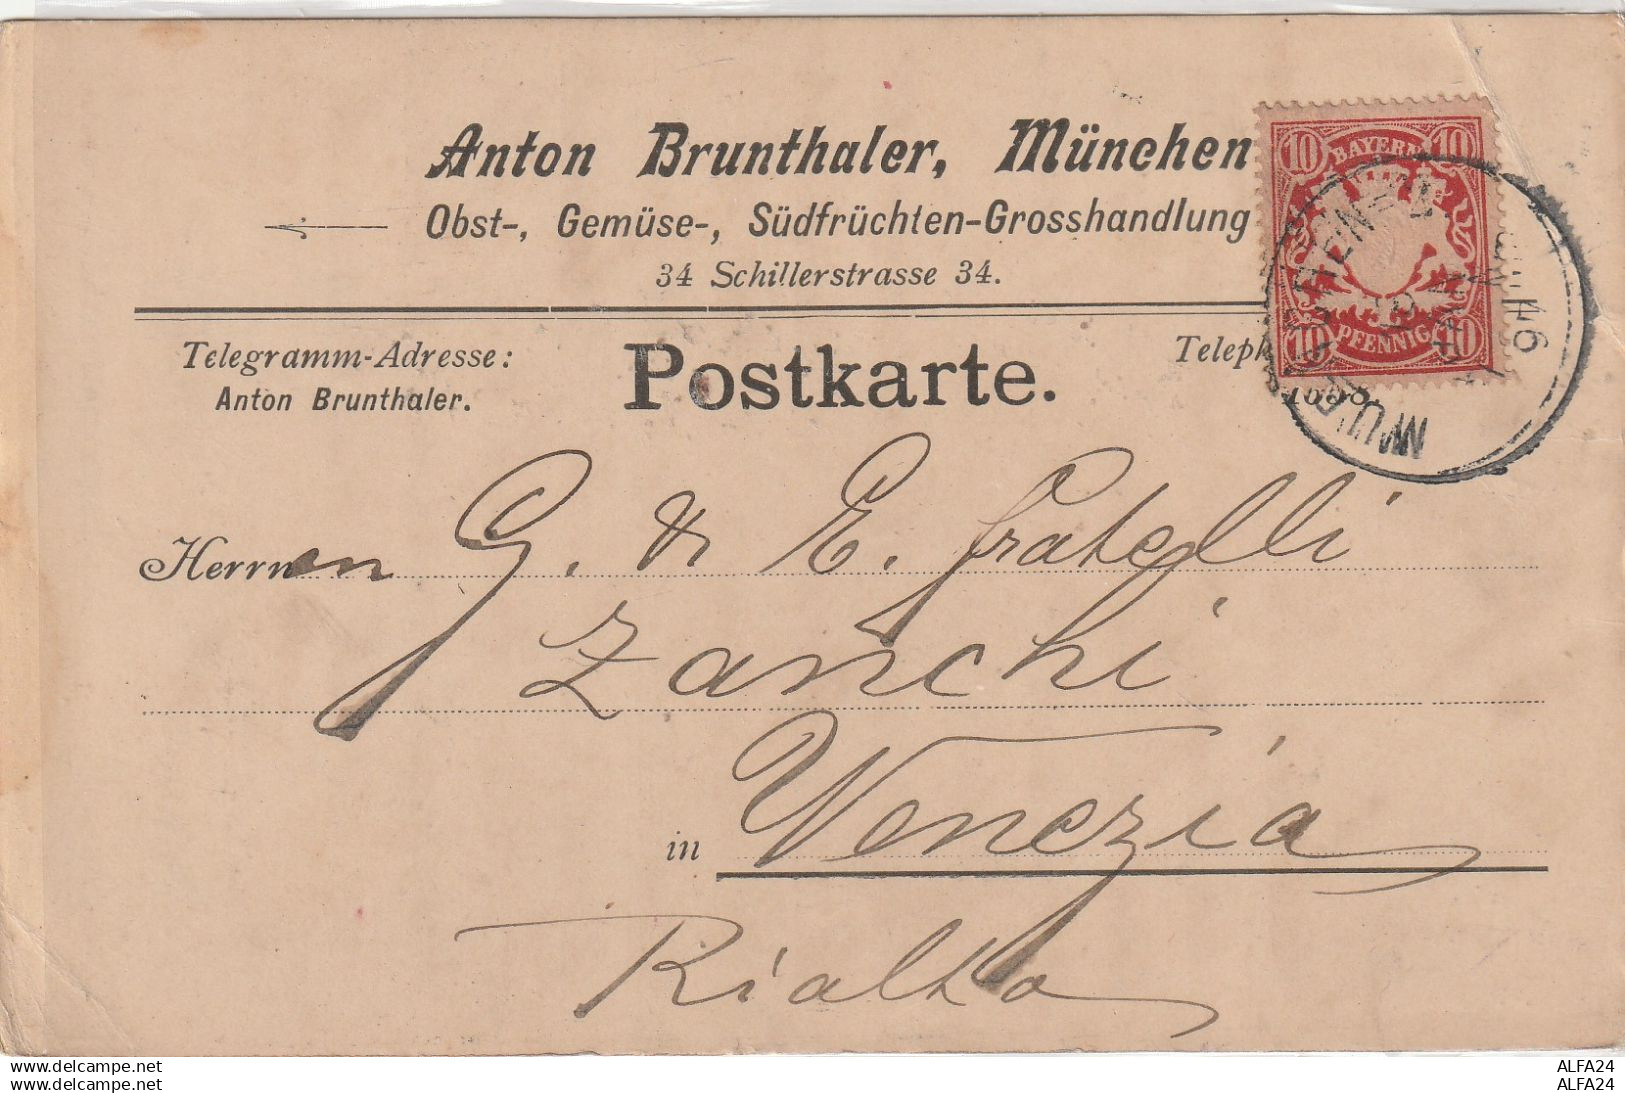 Anton Brunthaler, München
Obst-, Gemüse-, Südfrüchten-Grosshandlung
34 Schillerstrasse 34.
10 BAYERN 10
10 PFENNIG 10
Telegramm-Adresse:
Anton Brunthaler.
Postkarte.
Teleph
1658.
Herrnen G. & E. fratelli
Zanchi
in Venezia
Rialto
ALFA24
ALFA24
www.delcampe.net
www.delcampe.net